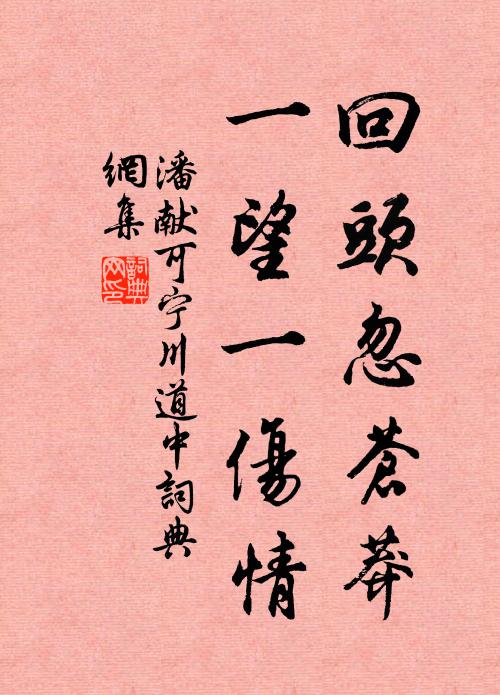 回頭忽蒼莽
一望一傷情
潘献可宁川道中詞典
網集
詞典
网印